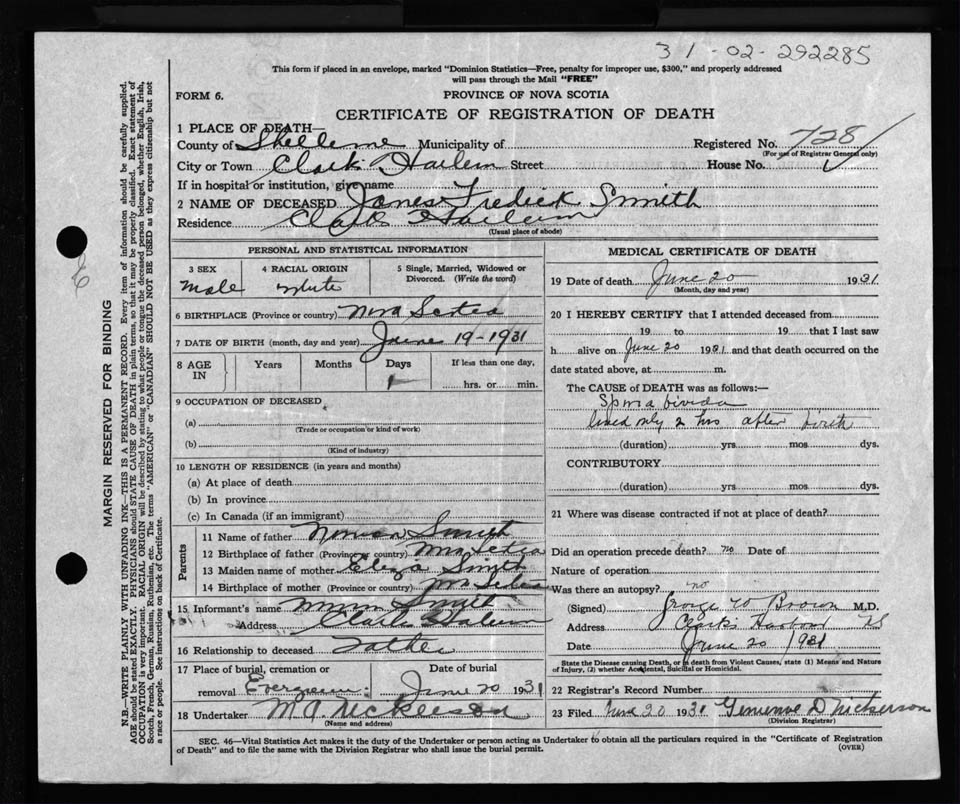 31-02-292285
This form if placed in an envelope, marked "Dominion Statistics—Free, penalty for improper use, $300," and properly addressed
will pass through the Mail "FREE"
FORM 6.
PROVINCE OF NOVA SCOTIA
CERTIFICATE OF REGISTRATION OF DEATH
1 PLACE OF DEATH—
County of Municipality of Registered No. 728
(For use of Registrar General only)
City or Town Clark Street House No.
If in hospital or institution, give name
2 NAME OF DECEASED James Fredick Smith
Residence Clark
(Usual place of abode)
PERSONAL AND STATISTICAL INFORMATION
3 SEX 4 RACIAL ORIGIN 5 Single, Married, Widowed or Divorced. (Write the word)
male white
6 BIRTHPLACE (Province or country) Nova Scotia
7 DATE OF BIRTH (month, day and year) June 19-1931
8 AGE IN Years Months Days If less than one day,
1 hrs. or min.
9 OCCUPATION OF DECEASED
(a)
(Trade or occupation or kind of work)
(b)
(Kind of industry)
10 LENGTH OF RESIDENCE (in years and months)
(a) At place of death
(b) In province
(c) In Canada (if an immigrant)
Parents
11 Name of father Smith
12 Birthplace of father (Province or country)
13 Maiden name of mother Eliza Smith
14 Birthplace of mother (Province or country)
15 Informant's name Smith
Address Clark
16 Relationship to deceased Father
17 Place of burial, cremation or removal Evergreen Date of burial June 20 1931
18 Undertaker
(Name and address)
MEDICAL CERTIFICATE OF DEATH
19 Date of death June 20 1931
(Month, day and year)
20 I HEREBY CERTIFY that I attended deceased from
19 to 19 that I last saw
h alive on June 20 1931 and that death occurred on the
date stated above, at m.
The CAUSE of DEATH was as follows:—
Spina bivida
lived only 2 hrs after birth
(duration) yrs mos dys.
CONTRIBUTORY
(duration) yrs mos dys.
21 Where was disease contracted if not at place of death?
Did an operation precede death? no Date of
Nature of operation
Was there an autopsy? no
(Signed) George W Brown M,D.
Address Clark's Harbour NS
Date June 20 / 1931
State the Disease causing Death, or in death from Violent Causes, state (1) Means and Nature of Injury, (2) whether Accidental, Suicidal or Homicidal.
22 Registrar's Record Number
23 Filed June 20 1931 D Nickerson
(Division Registrar)
SEC. 46—Vital Statistics Act makes it the duty of the Undertaker or person acting as Undertaker to obtain all the particulars required in the "Certificate of Registration
of Death" and to file the same with the Division Registrar who shall issue the burial permit.
(OVER)
MARGIN RESERVED FOR BINDING
N.B.—WRITE PLAINLY WITH UNFADING INK—THIS IS A PERMANENT RECORD. Every item of information should be carefully supplied.
AGE should be stated EXACTLY. PHYSICIANS should STATE CAUSE OF DEATH in plain terms, so that it may be properly classified. Exact statement of
OCCUPATION is very important. RACIAL ORIGIN will be described by stating to what people or tongue the deceased person belonged, whether English, Irish,
Scotch, French, German, Russian, Ruthenian, etc. The terms "AMERICAN" or "CANADIAN" SHOULD NOT BE USED as they express citizenship but not
a race or people. See instructions on back of Certificate.